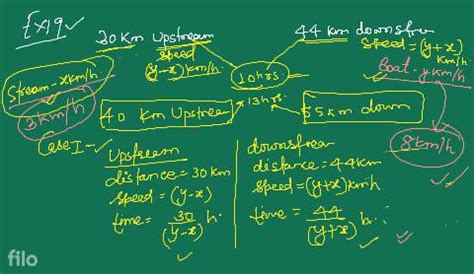 Ex19
30 km Upstream
speed
(y-x) km/h
44 km downstrea
speed = (y+x)
km/h
10hrs
Stream - x km/h
3 km/h
Boat - y km/h
8 km/h
40 km Upstrea
13 hrs
55 km down
Case I -
Upstream
distance = 30 km
speed = (y-x)
time = 30/(y-x) h.
downstrea
distance = 44 km
speed = (y+x) km/h
time = 44/(y+x) h.
filo